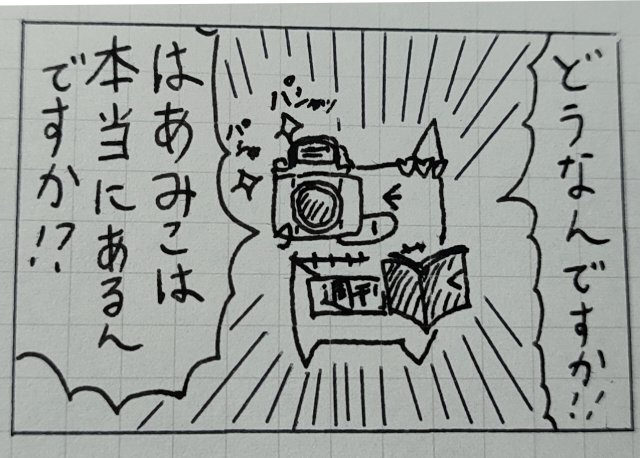 どうなんですか!!
パシャッ
パシャ
週刊
はあみこは
本当にあるん
ですか!?